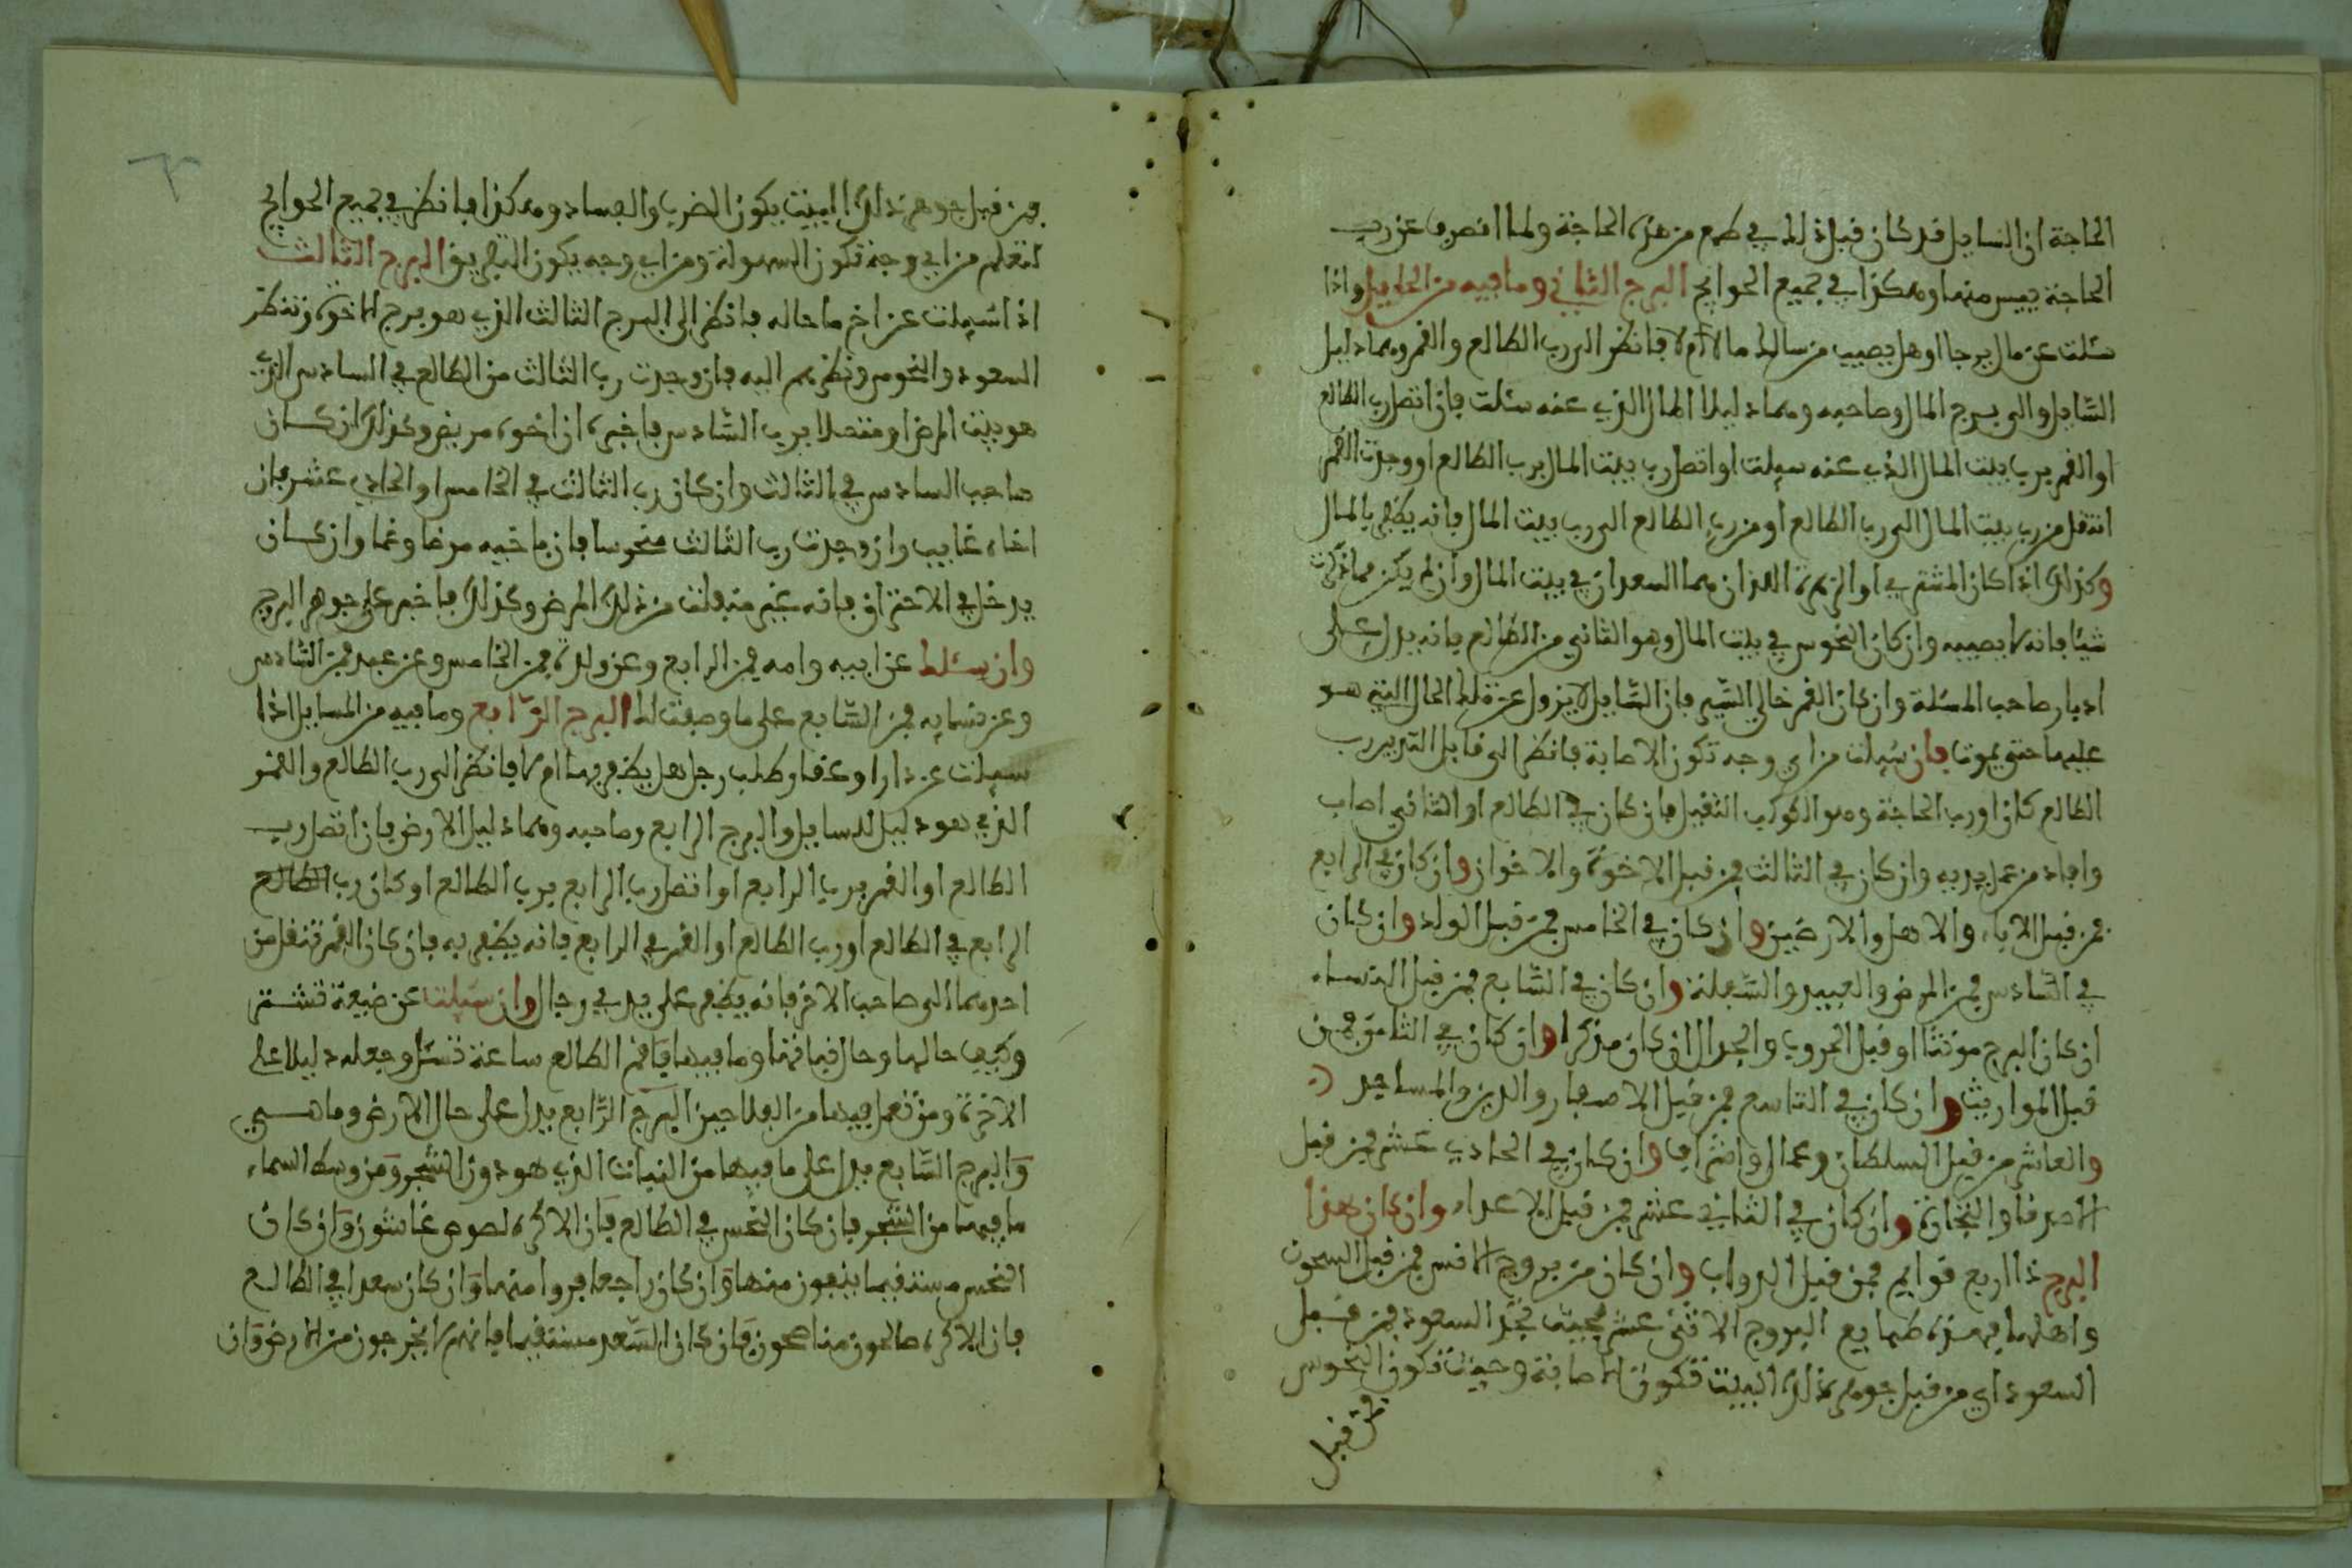 الحاجة ان السايل قد كان قبل ذلك في طمع من هذه الحاجة ولما انصرف عن رب
الحاجة ييس منها وهكذا في جميع الحوايج البرج الثاني وما فيه من المسايل واذا
سئلت عن مال يرجا او هل يصيب من سالك مالا ام لا فانظر الى رب الطالع والقمر وهما دليل
السّايل والى برج المال وصاحبه وهما دليلا المال الذي عنه سئلت فان اتصل رب الطالع
او القمر برب بيت المال الذي عنه سيلت او اتصل رب بيت المال برب الطالع او وجدت القمر
انتقل من رب بيت المال الى رب الطالع او من رب الطالع الى رب بيت المال فانه يظفر بالمال
وكذلك اذا كان المشتري او الزهرة اللذان هما السعدان في بيت المال وان لم يكن مما ذكرت
شيئا فانه لا يصيبه وان كان النحوس في بيت المال وهو الثاني من الطالع فانه يدل على
ادبار صاحب المسئلة وان كان القمر خالي السّير فان السّايل لا يزول عن تلك الحال التي هو
عليها حتى يموت فان سُيلت من اي وجه تكون الاصابة فانظر الى قابل التدبير رب
الطالع كان او رب الحاجة وهو الكوكب الثقيل فان كان في الطالع او الثاني اصاب
وافاد من عمل يديه وان كان في الثالث فمن قبل الاخوة والاخوان وان كان في الرابع
فمن قبل الاباء والاهل والارضين وان كان في الخامس فمن قبل الولد وان كان
في السّادس فمن المرض والعبيد والسّفلة وان كان في السّابع فمن قبل النساء
ان كان البرج مونثا او قبل الحروب والجدال ان كان مذكرا وان كان في الثامن فمن
قبل المواريث وان كان في التاسع فمن قبل الاسفار والدين والمساجد
والعاشر من قبل السلطان وعمال واشراف وان كان في الحادي عشر فمن قبل
الاصدقا والتجارة وان كان في الثاني عشر فمن قبل الاعداء وان كان هذا
البرج ذا اربع قوايم فمن قبل الدواب وان كان من بروج الانس فمن قبل السجون
واهلها فهذه طبايع البروج الاثنى عشر فحيث تجد السعود فمن قبل
السعود اي من قبل جوهر ذلك البيت تكون الاصابة وحيث تكون النحوس
فمن قبل
فمن قبل جوهر ذلك البيت يكون الضرب والفساد وهكذا فانظر في جميع الحوايج
لتعلم من اي وجه تكون السهولة ومن اي وجه يكون التعريف البرج الثالث
اذا سُيلت عن اخ ما حاله فانظر الى البرج الثالث الذي هو برج الاخوة وتنظر
السعود والنحوس ونظرهم اليه فان وجدت رب الثالث من الطالع في السادس الذي
هو بيت المرض او متصلا برب السّادس فاخبره ان اخوه مريض وكذلك ان كان
صاحب السادس في الثالث وان كان رب الثالث في الخامس او الحادي عشر فان
اخاه غايب وان وجدت رب الثالث منحوسا فان باخيه مرضا وغما وان كان
يدخل في الاحتراق فانه غير منفلت من ذلك المرض وكذلك فاخبر على جوهر البرج
وان سئلت عن ابيه وامه فمن الرابع وعن ولده فمن الخامس وعن عبد فمن السّادس
وعن نسايه فمن السّابع على ما وصفت لك البرج الرّابع وما فيه من المسايل اذا
سيلت عن دار او عقار طلب رجل هل يظفر بها ام لا فانظر الى رب الطالع والقمر
الذي هو دليل للسايل والبرج الرابع وصاحبه وهما دليل الارض فان اتصل رب
الطالع او القمر برب الرابع او اتصل رب الرابع برب الطالع او كان رب الطالع
الرابع في الطالع او رب الطالع او القمر في الرابع فانه يظفر به فان كان القمر تنقل من
احدهما الى صاحب الاخر فانه يظفر على يد رجال وان سيلت عن ضيعة تشتر
وكيف حالها وحال قيامتها وما فيها فاقم الطالع ساعة تسئل وجعله دليلا على
الاخرة ومن يعمل فيها من الفلاحين البرج الرّابع يدل على حال الارض وما هي
والبرج السّابع يدل على ما فيها من النبات الذي هو دون الشجر ومن وسط السماء
ما فيها من الشجر فان كان النحس في الطالع فان الاكره لصوص غاشون وان كان
النحس مستقيما يبقون منها وان كان راجعا فروا منها وان كان سعدا في الطالع
فان الاكره صالحون مناصحون فان كان السّعد مستقيما فانهم لا يخرجون من الارض وان